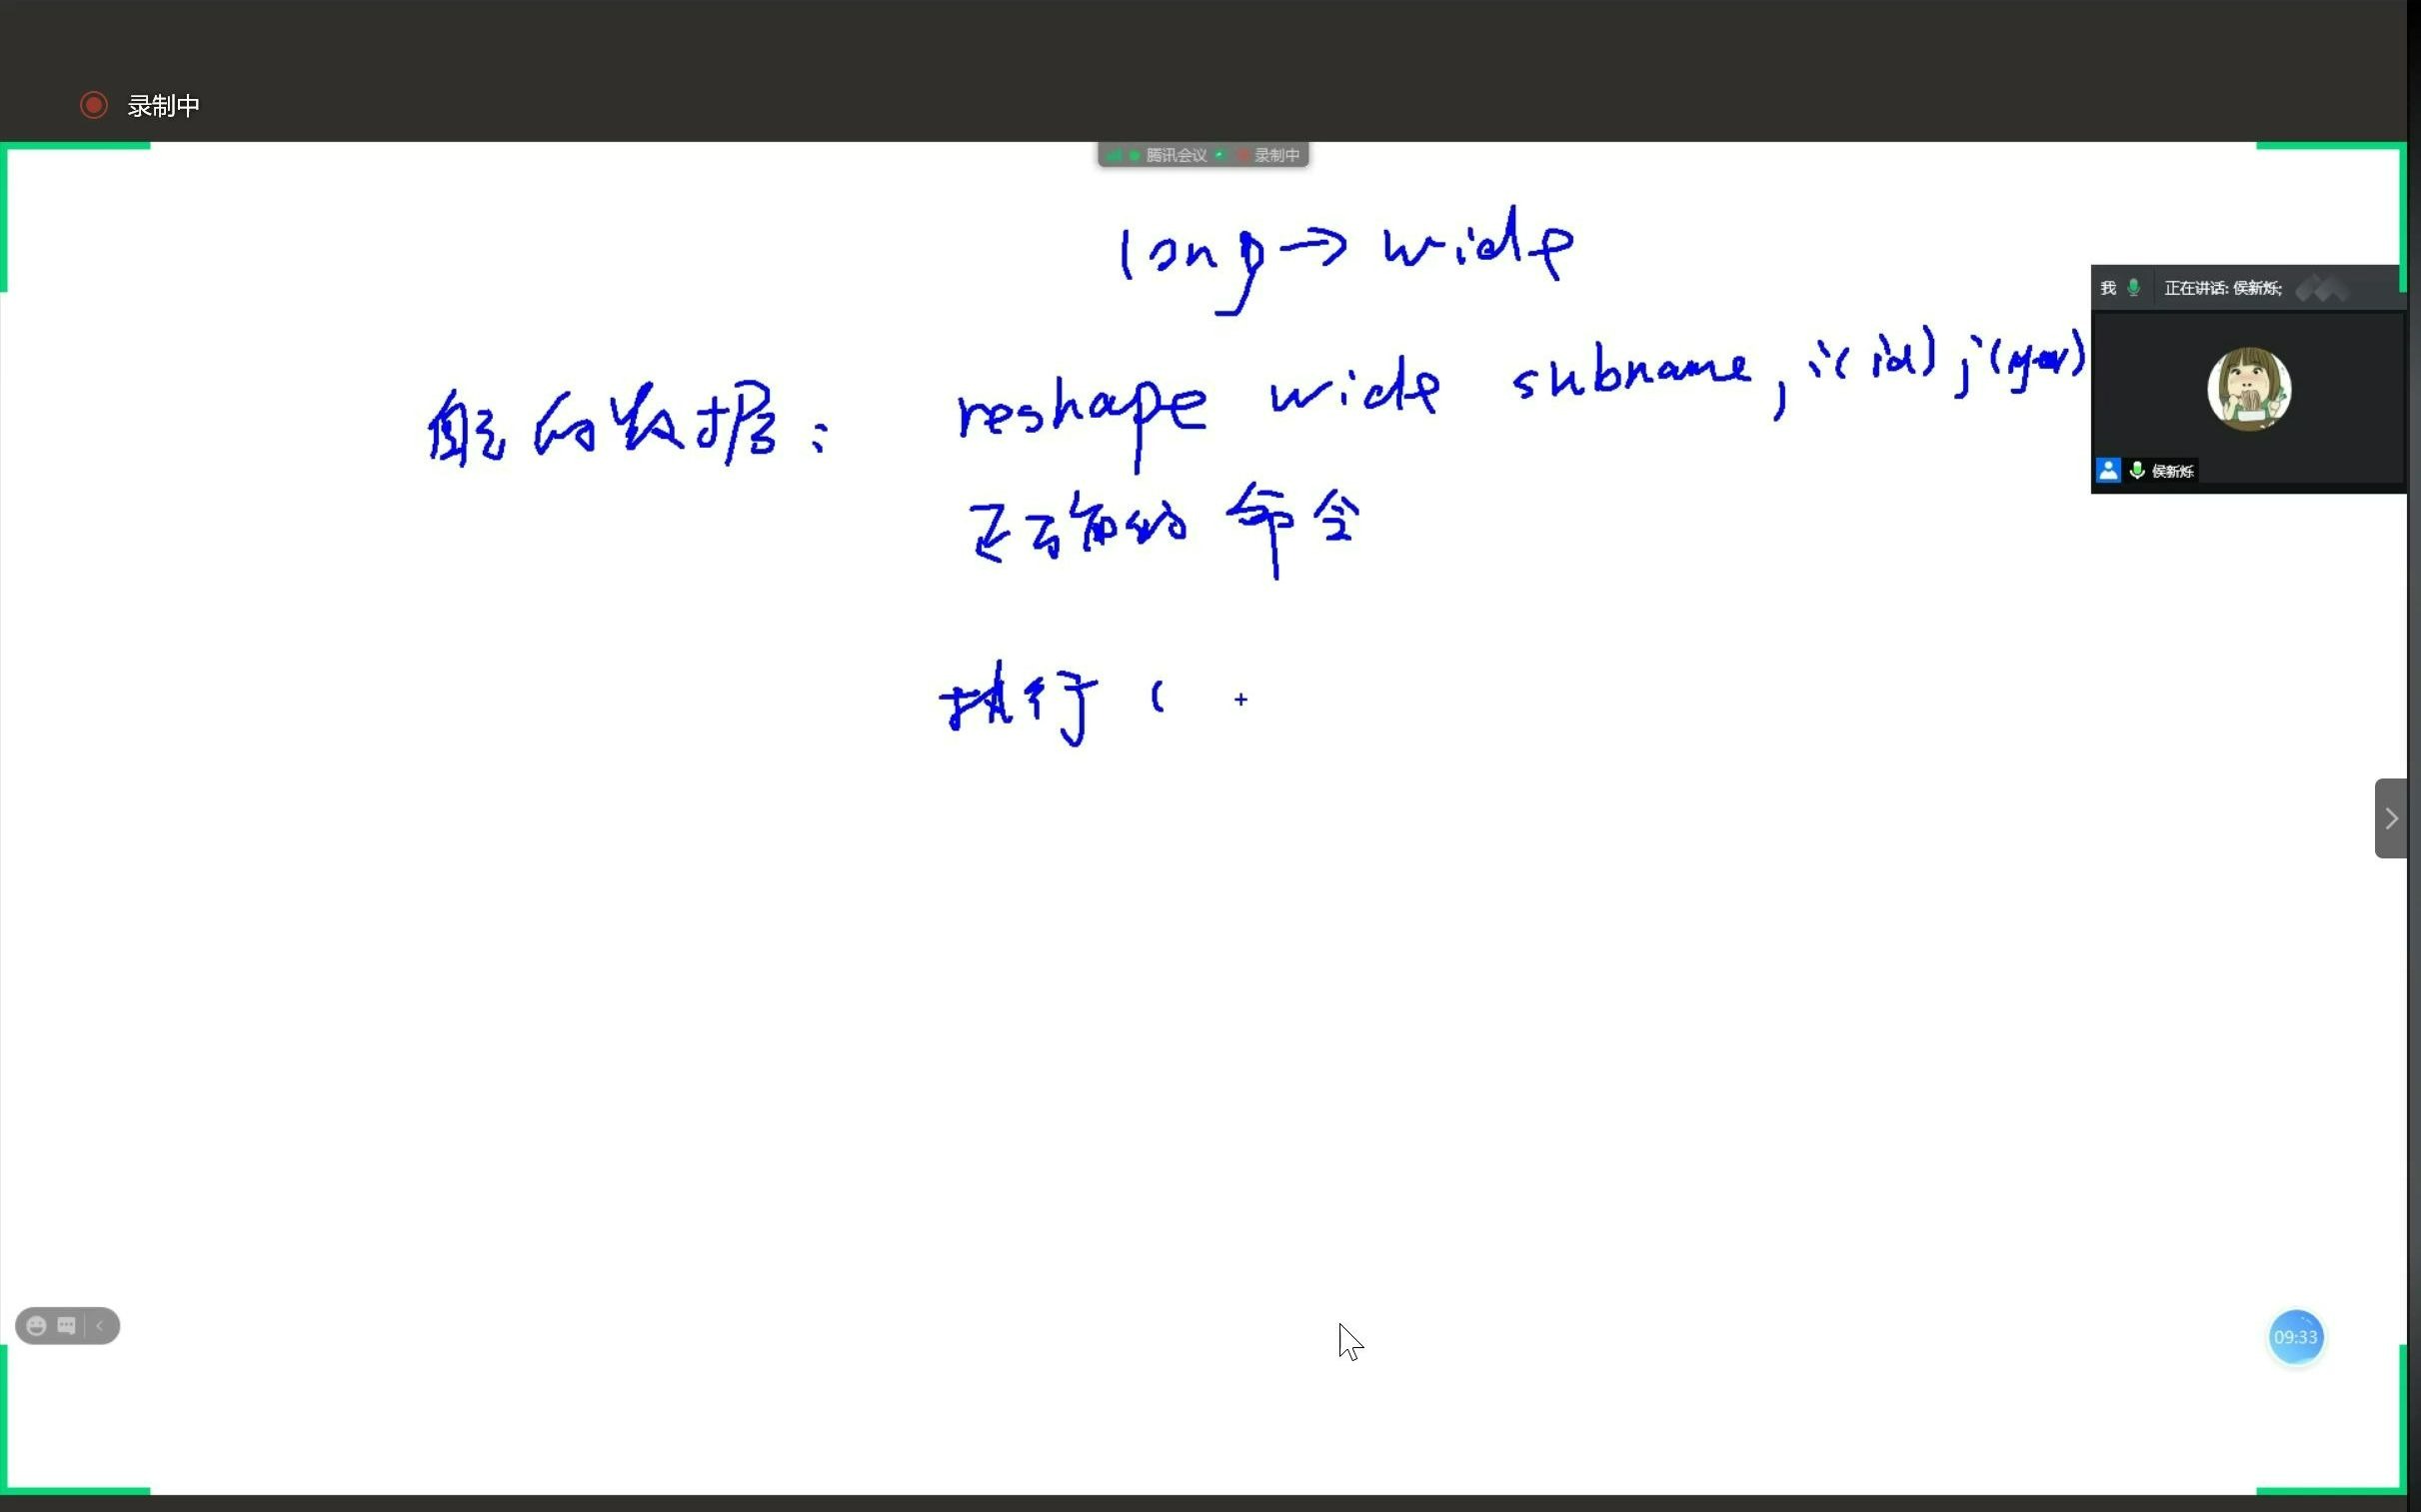 录制中
腾讯会议 录制中
long → wide
我 正在讲话: 侯新烁;
的数据: reshape wide subname, i(id) j(year)
侯新烁
正确的 命令
执行 (
09:33